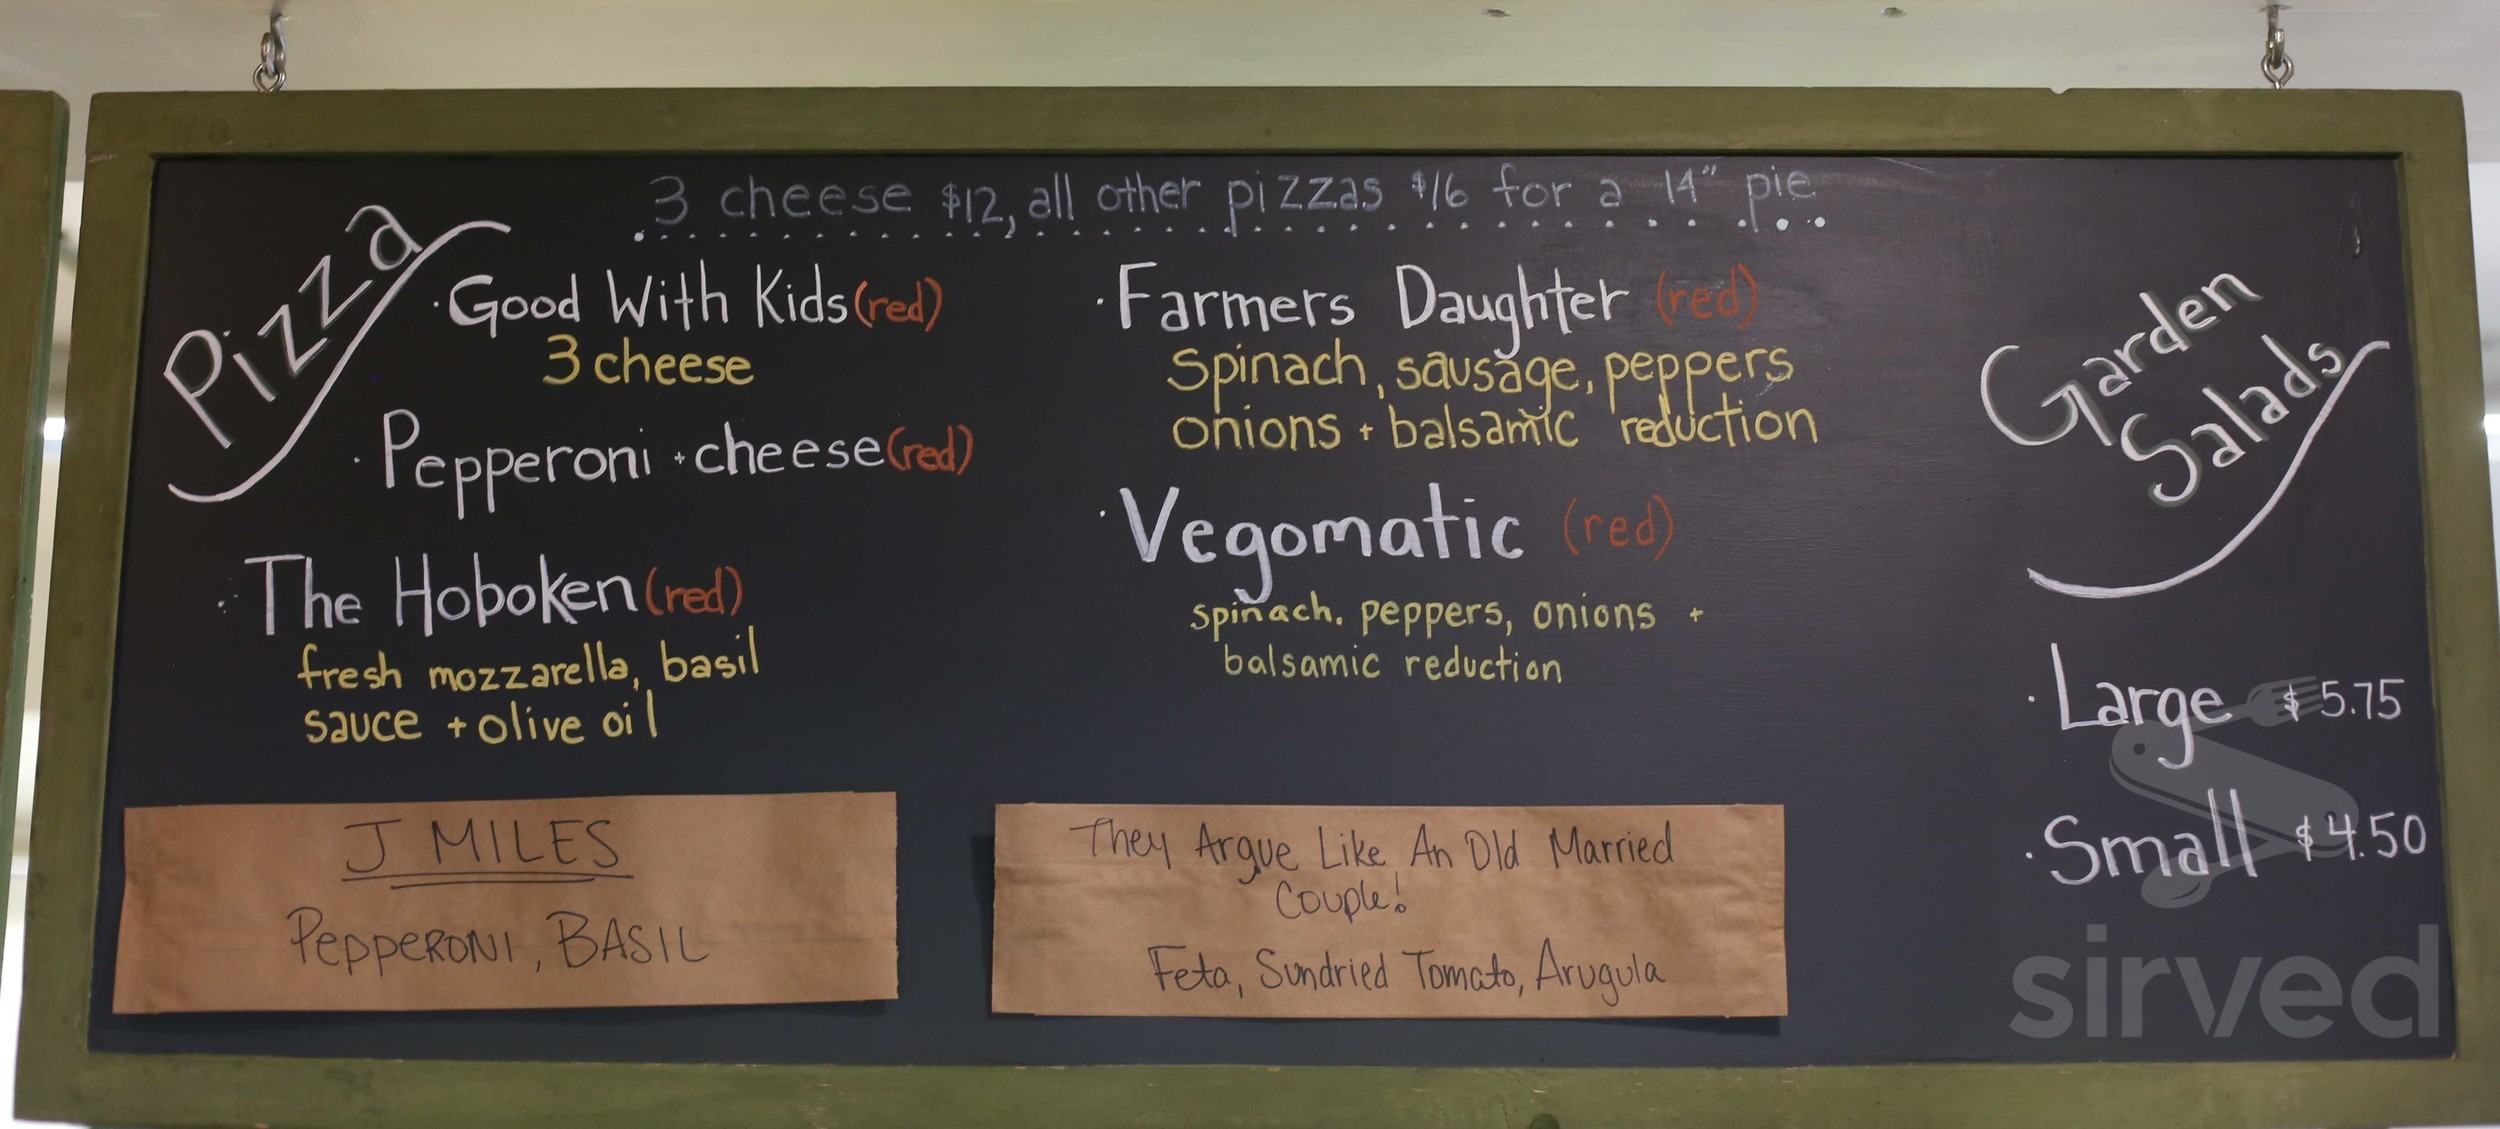 3 cheese $12, all other pizzas $16 for a 14" pie
Pizza
· Good With Kids (red)
3 cheese
· Pepperoni + cheese (red)
· The Hoboken (red)
fresh mozzarella, basil
sauce + olive oil
· Farmers Daughter (red)
Spinach, sausage, peppers
onions + balsamic reduction
· Vegomatic (red)
spinach, peppers, onions +
balsamic reduction
J MILES
PEPPERONI, BASIL
They Argue Like An Old Married
Couple!
Feta, Sundried Tomato, Arugula
Garden
Salads
· Large $5.75
· Small $4.50
sirved